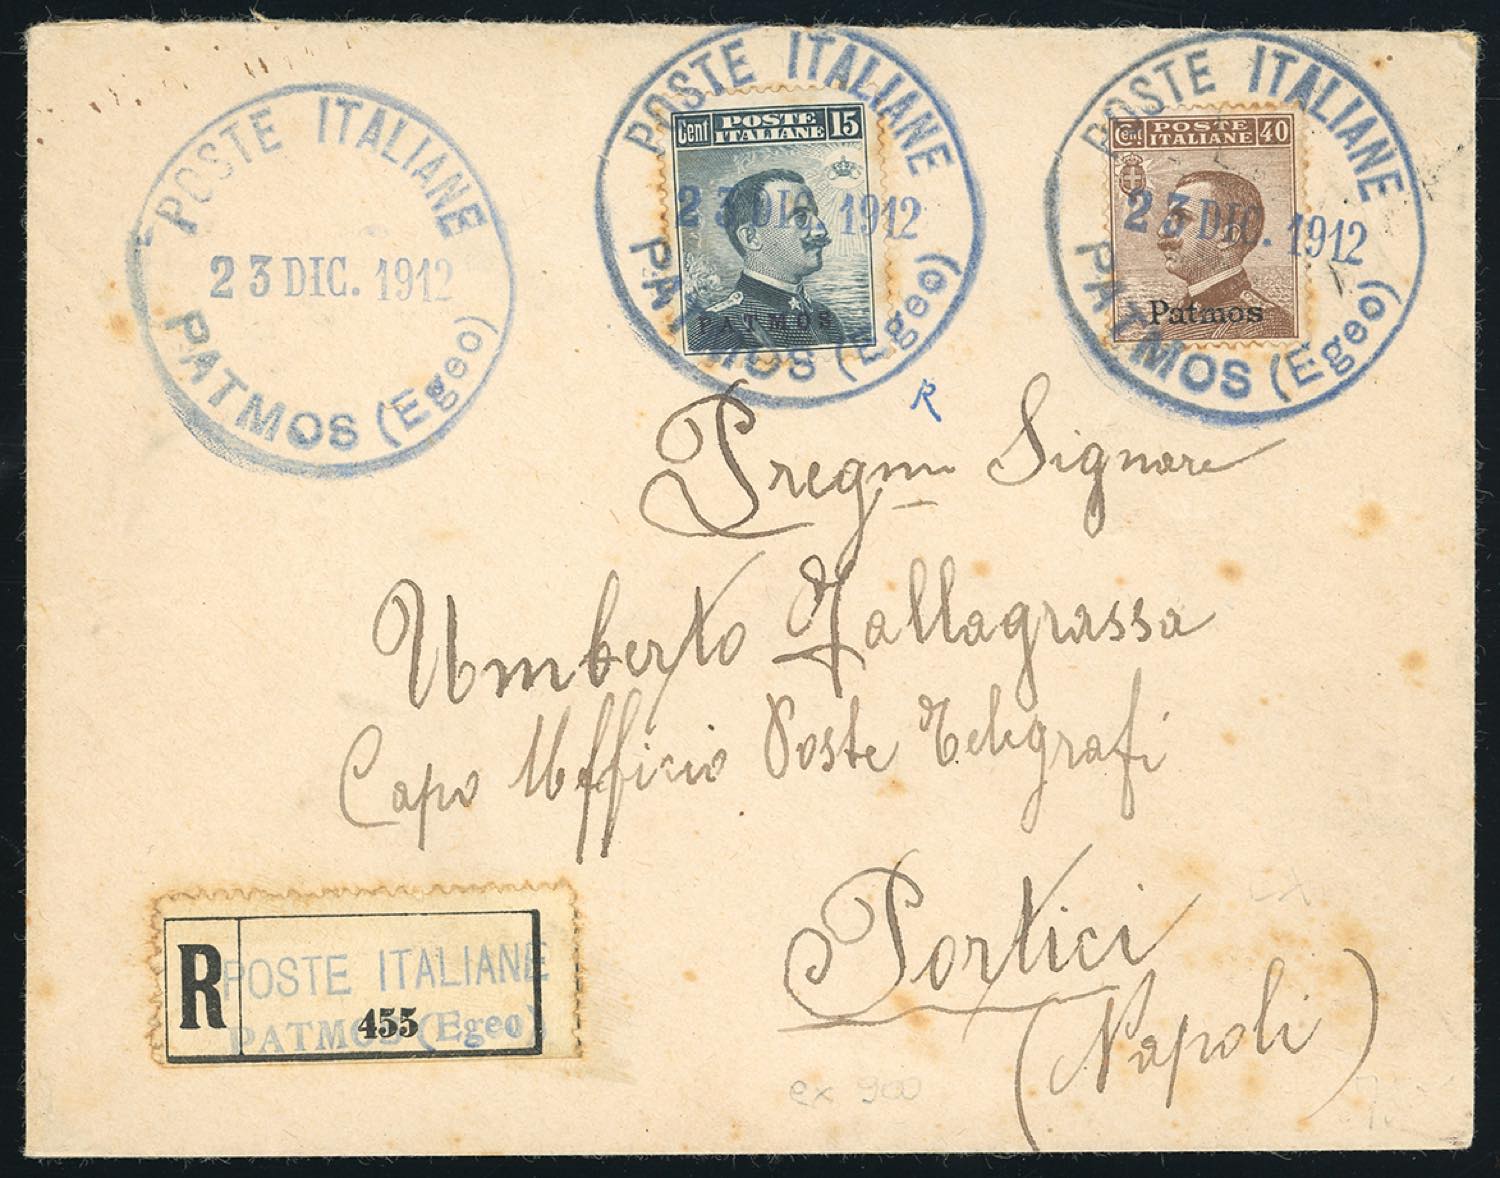 POSTE ITALIANE
23 DIC. 1912
PATMOS (Egeo)
POSTE ITALIANE
23 DIC. 1912
PATMOS (Egeo)
Cent POSTE ITALIANE 15
PATMOS
POSTE ITALIANE
23 DIC. 1912
PATMOS (Egeo)
Cent POSTE ITALIANE 40
Patmos
R
Pregmo Signore
Umberto Tallagrassa
Capo Ufficio Poste Telegrafi
Portici
(Napoli)
R
POSTE ITALIANE
455
PATMOS (Egeo)
ex 900